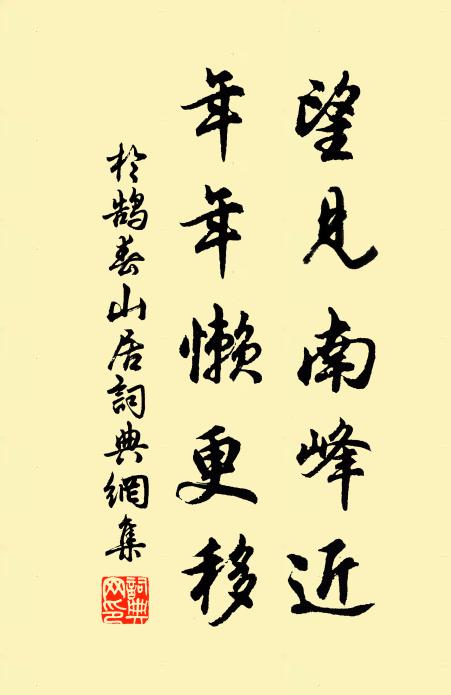 望見南峰近
年年懶更移
於鵠春山居詞典網集
詞典
网印